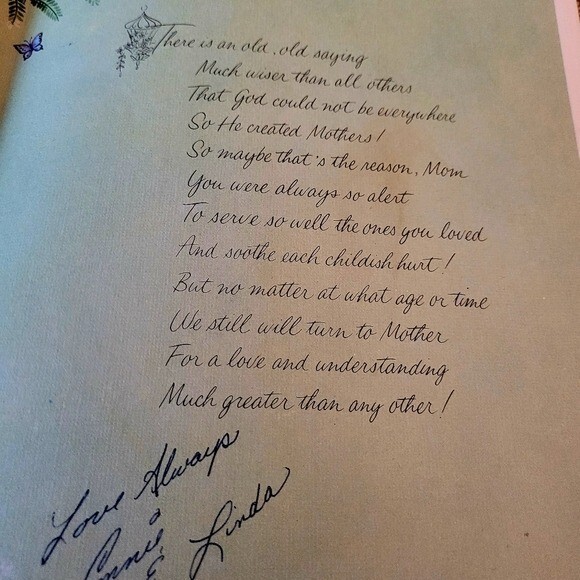 There is an old, old saying
Much wiser than all others
That God could not be everywhere
So He created Mothers!
So maybe that's the reason, Mom
You were always so alert
To serve so well the ones you loved
And soothe each childish hurt!
But no matter at what age or time
We still will turn to Mother
For a love and understanding
Much greater than any other!
Love Always
Linda